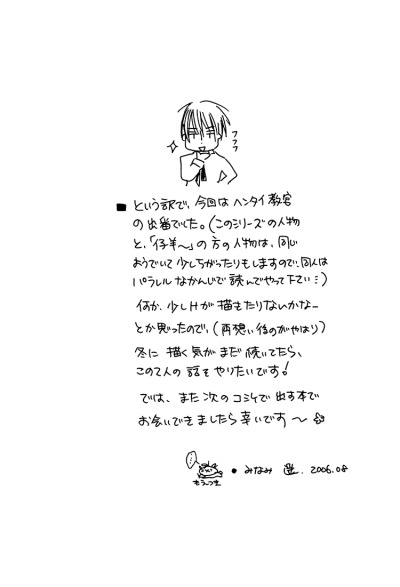 フフフ
■ という訳で、今回は ヘンタイ教官
の出番でした。(このシリーズの人物
と、「仔羊〜」の方の人物は、同じ
ようでいて少しちがったりもしますので、同人は
パラレルなかんじで読んでやって下さい:)
何か、少しHが描きたりないかなー
とか思ったので、(再想い後のがやはり)
冬に描く気がまだ続いてたら、
この2人の話をやりたいです!
では、また次のコミケで出す本で
お会いできましたら幸いです〜
● みなみ 遥. 2006.08